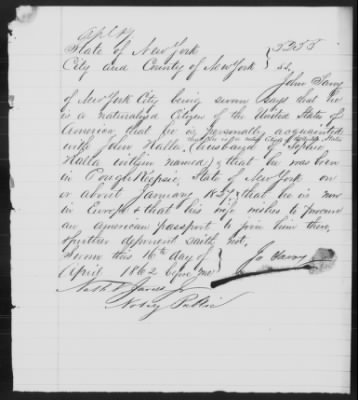 Apl. 17
State of New York } 3255
City and County of New York } ss.
John
of New York City being sworn says that he
is a naturalized Citizen of the United States of
America that he is personally acquainted
with John Halla, (husband of Sophie
Halla within named) & that he was born
in PoughKeepsie, State of New York on
or about January 1827 & that he is now
in Europe & that his wife wishes to procure
an American passport to join him there,
& further deponent saith not,
Sworn this 16th day of }
April 1862 before me }
Nath
Notary Public